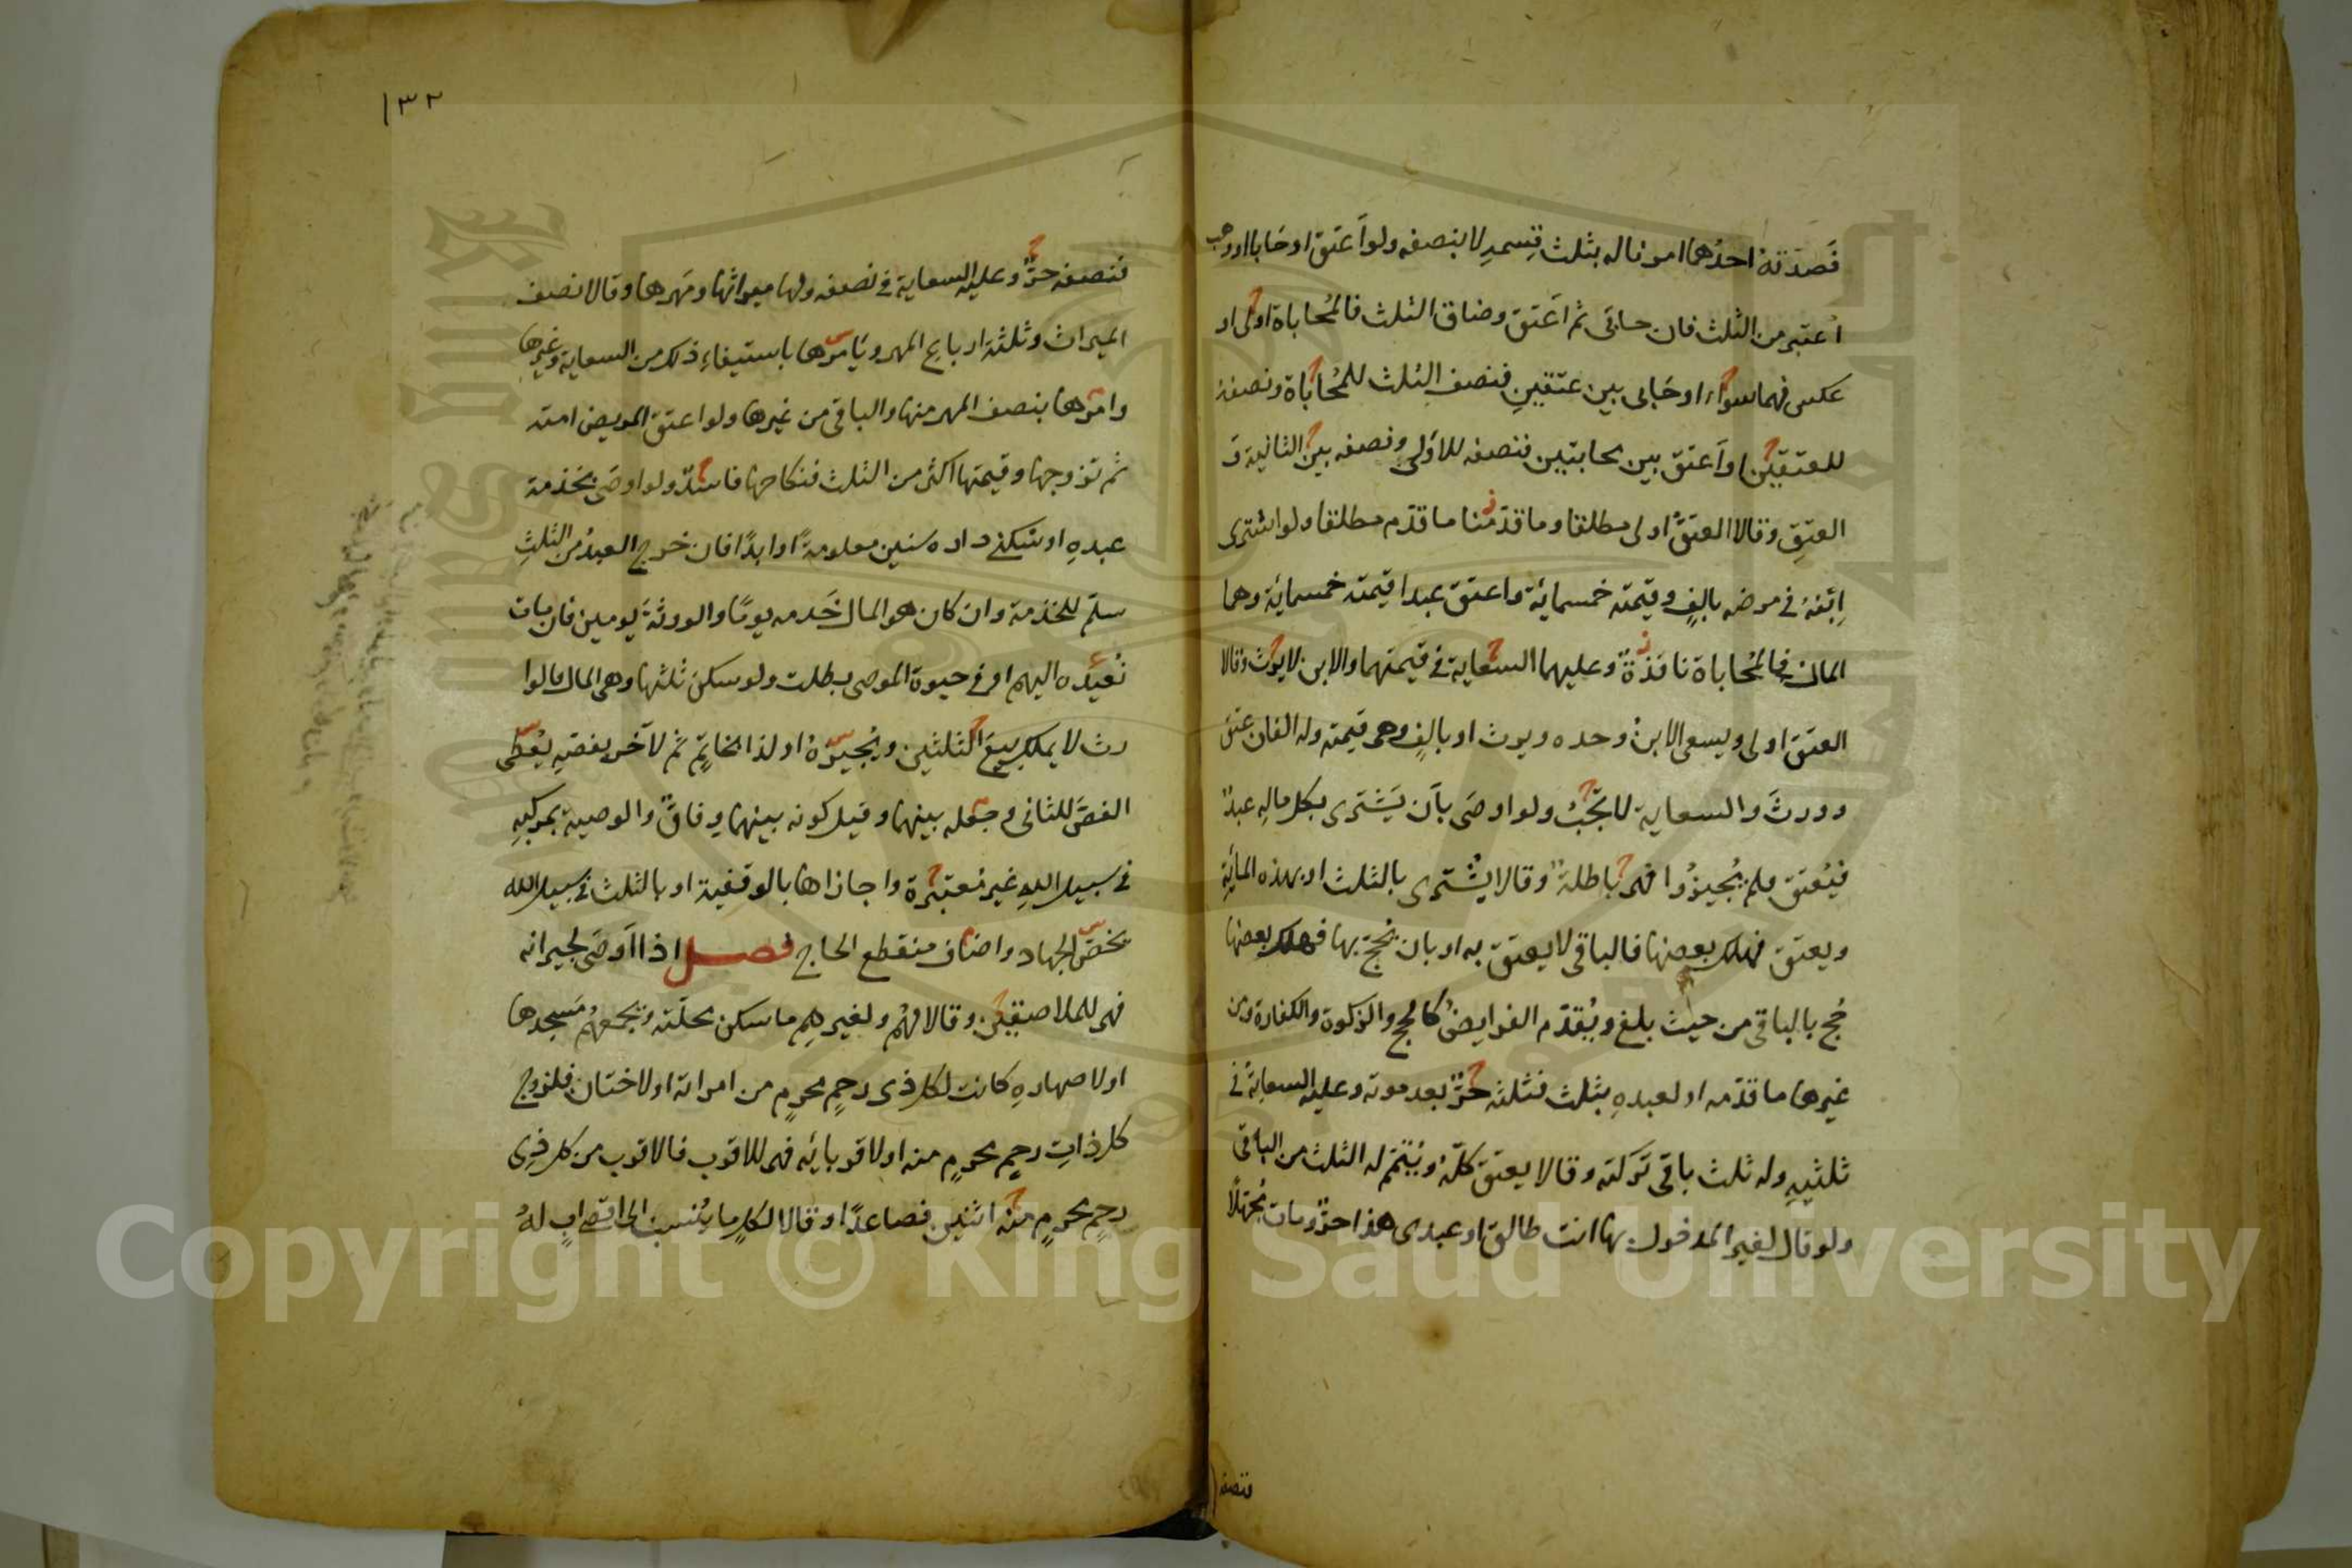 فَصَدَّقَهُ احدُهما امرناله بثلث قِسمهِ لا بنصفه ولو اَعتَق او حَابا او وهب
اُعتبر من الثلث فان حابَى ثم اَعتَق وضاق الثلث فالمُحاباة اولى او
عكس فهما سواء او حَابى بين عتقينِ فنصف الثلث للمُحاباة ونصفهُ
للعتقين او اَعتق بين محابتين فنصفه للاُولى ونصفه بين الثانية وَ
العتِقِ وقالا العتقُ اولى مطلقا وما قدّمنا ما قدّم مطلقا ولو اشترى
اِبْنَهُ في مرضه بالفٍ وقيمته خمسمائة واعتق عبدا قيمته خمسمائة وهما
المال فالمُحاباة نافذةٌ وعليهما السعاية في قيمتهما والابن لا يرث وقالا
العتق اولى ويسعى الابنُ وحده ويرث او بالفٍ وهى قيمته وله الفان عتق
وورثَ والسعاية لا تجبُ ولو اوصَى بأن يَشتَرى بكل مالِه عبدٌ
فيُعتق فلم يُجيزُوا فهى باطلةٌ وقالا يشترى بالثلث او بهذه المائةِ
ويعتق فهلك بعضها فالباقى لا يعتق به او بان يُحجّ بها فهلك بعضها
حُج بالباقى من حيث بلغ ويُقدّم الفرايضُ كالحج والزكوة والكفارة ومن
غيرها ما قدّمه او لعبدهِ بثلث فثلثه حرٌّ بعد موته وعليه السعاية في
ثلثيهِ وله ثلث باقى تَركته وقالا يعتق كلّهُ ويُتمّم له الثلث من الباقى
ولو قال لغير المدخول بها انت طالق او عبدى هذا حرّ ومات مُجهِلًا
فنصفه
١٣٢
فنصفه حرٌّ وعليه السعاية في نصفه ولها ميراثها ومَهرها وقالا نصف
الميراث وثلثة ارباع المهر ويَأمرُها باستيفاء ذلك من السعاية وغيرها
وامرها بنصف المهر منها والباقى من غيرها ولو اعتق المريض امته
ثم تزوجها وقيمتها اكثر من الثلث فنكاحها فاسدٌ ولو اوصَى بخدمة
عبدهِ او سُكنى داره سنين معلومةً او ابدًا فان خرج العبدُ من الثلثِ
سلّم للخدمة وان كان هو المال خَدمه يومًا والورثةَ يومين فان مات
نُعيدُه اليهم او في حيوة الموصى بطلت ولو سكن ثلثها وهى المال فالوا
رث لا يملك بيعَ الثلثين ويُجيزهُ او لذا بخاتمٍ ثم لآخر بفصّهِ يُعطى
الفصَّ للثانى وجعله بينهما وقيل كونه بينهما وِفاقٌ والوصية بمركبِهِ
في سبيل اللهِ غير مُعتبَرة واجازاها بالوقفية او بالثلث في سبيل الله
يخصّ الجهاد واضاف منقطع الحاج فصل اذا اَوصَى لجيرانه
فهى للملاصقين وقالا لهُم ولغيرهِم ما سكن محلّته ويجمعهُم مسجدها
او لاصهارهِ كانت لكل ذى رحِمٍ محرمٍ من امراته او لاختان فلزوج
كل ذاتِ رحمٍ محرمٍ منه او لاقربائه فهى للاقرب فالاقرب من كل ذِى
رحِمٍ محرمٍ منه اثنين فصاعدًا وقالا لكلِّ ما يُنسب الى اقصى ابٍ لهُ
Copyright © King Saud University